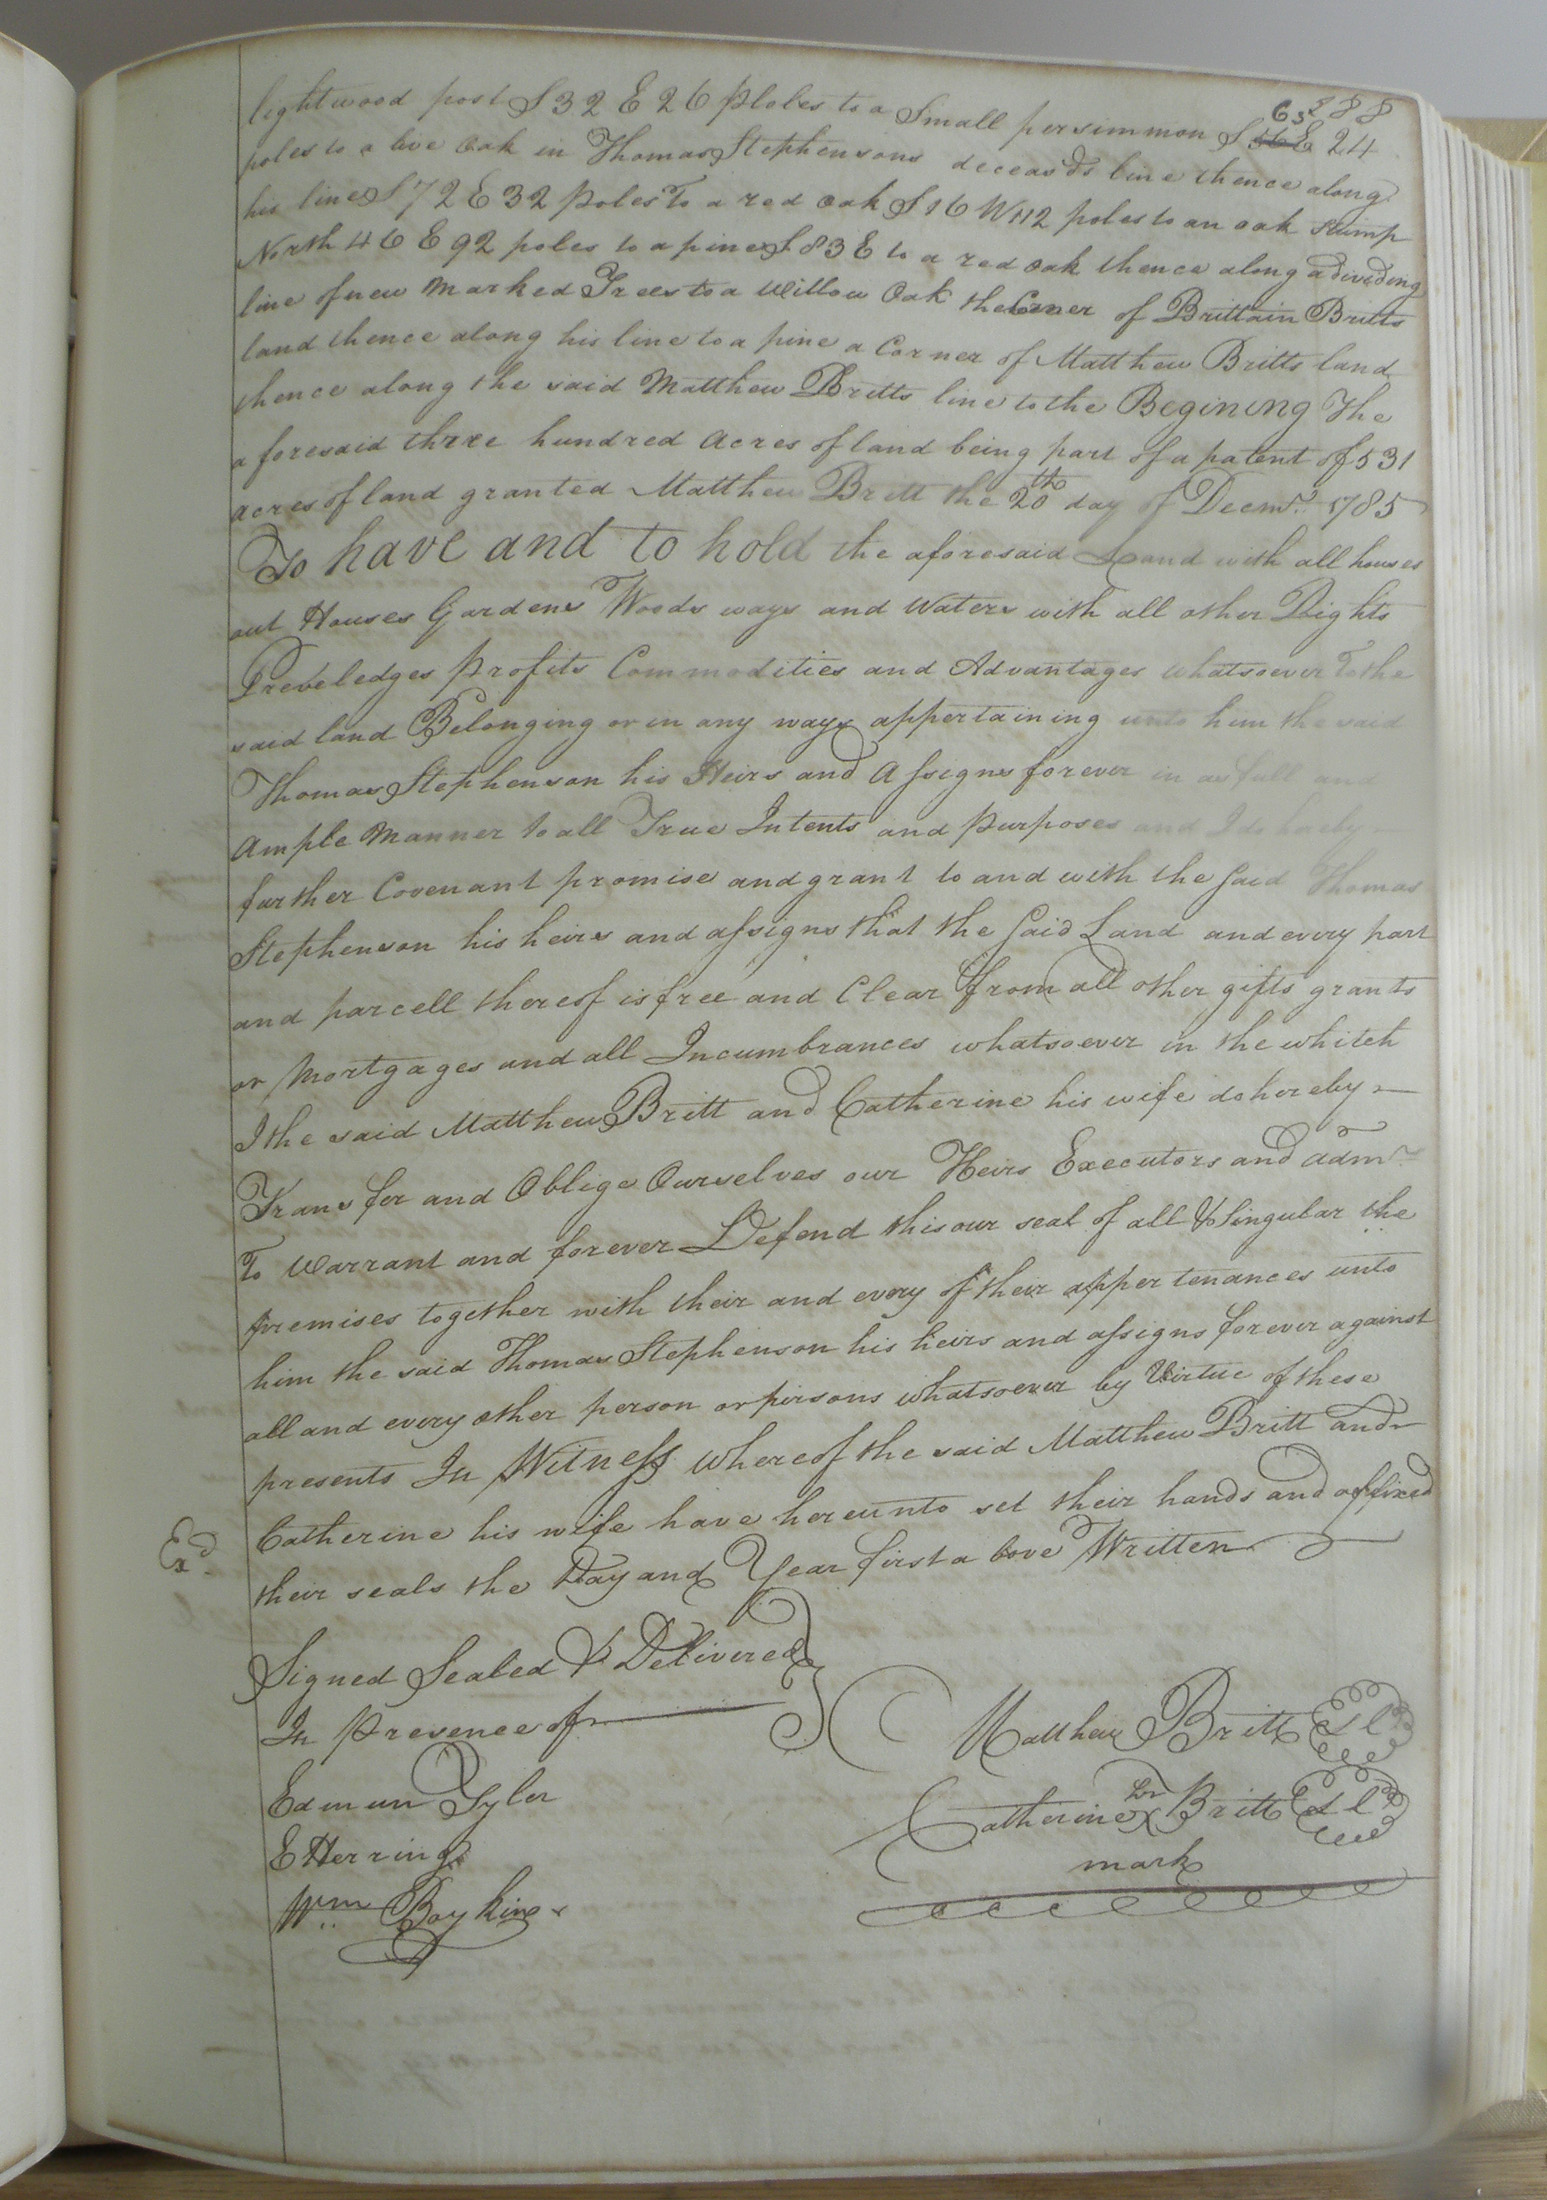 288
lightwood post S 32 E 26 Ploles to a Small persimmon S 65 E 24
poles to a live Oak in Thomas Stephensons deceasds line thence along
his line S 72 E 32 poles To a red oak S 16 W 112 poles to an oak stump
North 46 E 92 poles to a pine S 83 E to a red oak thence along a dividing
line of new Marked Trees to a Willow Oak the Corner of Brittain Britts
land thence along his line to a pine a Corner of Matthew Britts land
thence along the said Matthew Britts line to the Begining The
a foresaid three hundred acres of land being part of a patent of 531
acres of land granted Matthew Britt the 20th day of Decmr. 1785
To have and to hold the aforesaid Land with all houses
out Houses Gardens Woods ways and Waters with all other Rights
Preveledges Profits Commodities and Advantages whatsoever To the
said land Belonging or in any ways appertaining unto him the said
Thomas Stephenson his Heirs and Assigns forever in as full and
Ample Manner to all True Intents and Purposes and I do hereby
further Covenant promise and grant to and with the said Thomas
Stephenson his heirs and assigns that the said Land and every part
and parcell thereof is free and Clear from all other gifts grants
or Mortgages and all Incumbrances whatsoever in the whitch
I the said Matthew Britt and Catherine his wife do hereby
Transfer and Oblige Ourselves our Heirs Executors and admr
To Warrant and forever Defend this our seal of all & Singular the
premises together with their and every of their appertenances unto
him the said Thomas Stephenson his heirs and assigns forever against
all and every other person or persons whatsoever by Virtue of these
presents In Witness Whereof the said Matthew Britt and
Catherine his wife have hereunto set their hands and affixed
Exd
their seals the Day and Year first a bove Written
Signed Sealed & Delivered
In Presence of
Matthew Britt Sl
Edmun Tyler
Catherine her X Britt Sl
mark
E Herring
Wm Boykin